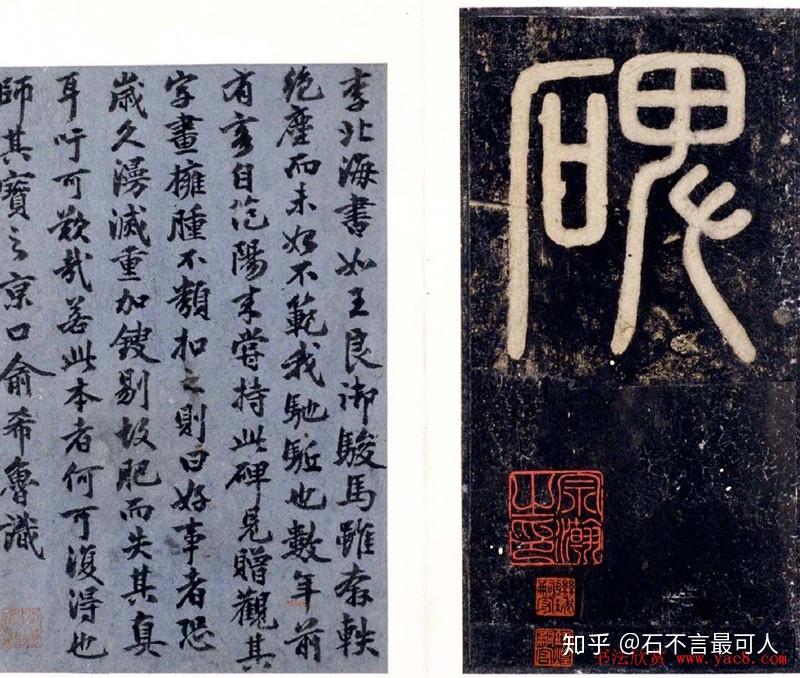 碑
宗瀚之印
李北海書如王良御駿馬雖奔軼
絶塵而未始不範我馳駈也數年前
有客自范陽来嘗持此碑見贈觀其
字畫擁腫不類扣之則曰好事者恐
歳久漫滅重加鋟剔故肥而失其真
耳吁可歎哉若此本者何可復得也
師其寶之京口俞希魯識
知乎 @石不言最可人
书法欣赏 www.yac8.com